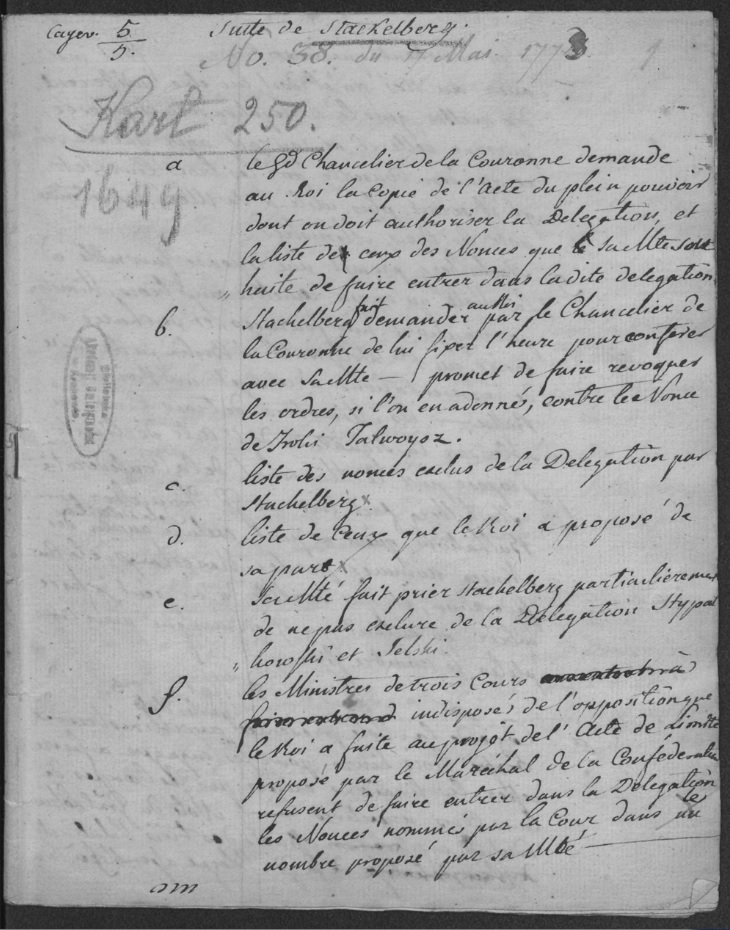 Cayer. 5/5.
Suite de Stackelberg.
No. 38. du 17 Mai 1773
1
Kart 250.
1649
a
le Gd Chancelier de la Couronne demande
au Roi la Copie de l'Acte du plein pouvoir
dont on doit authoriser la Delegation, et
la liste de ceux des Nonces que sa Mté sou
„ haite de faire entrer dans la dite delegation.
b.
Stackelberg fait demander aussi par le Chancelier de
la Couronne de lui fixer l'heure pour conferer
avec sa Mté — promet de faire revoquer
les ordres, si l'on en a donnés, contre le Nonce
de Troki Talwoysz.
c.
liste des nonces exclus de la Delegation par
Stackelberg x
d.
liste de Ceux que le Roi a proposé de
sa part x
e.
Sa Mté fait prier Stackelberg particulièrement
de ne pas exclure de la Delegation Stypał
„ kowski et Jelski.
f.
les Ministres de trois Cours
indisposés de l'opposition que
le Roi a faite au projét de l'Acte de Limite
proposé par le Maréchal de la Confédération
refusent de faire entrer dans la Delegation
les Nonces nommés par la Cour dans le
nombre proposé par sa Mté —